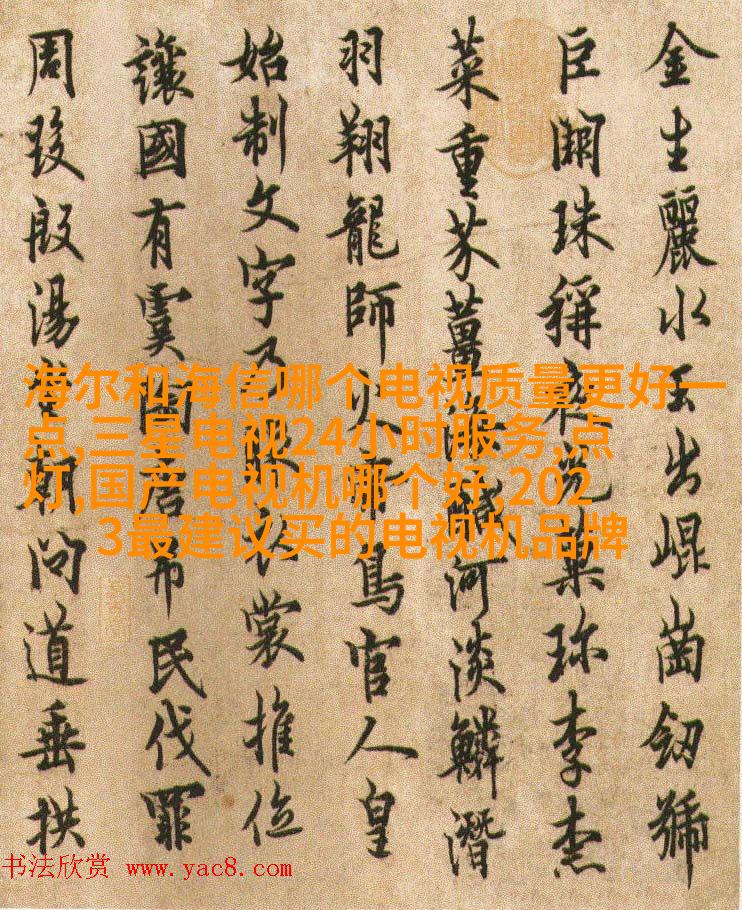 金生麗水玉出崐崗劒號
巨闕珠稱夜光菓珎李柰
菜重芥薑海醎河淡鱗潛
羽翔龍師火帝鳥官人皇
始制文字乃服衣裳推位
讓國有虞陶唐弔民伐罪
周發殷湯坐朝問道垂拱
海尔和海信哪个电视质量更好一
点,三星电视24小时服务,点
灯,国产电视机哪个好,202
3最建议买的电视机品牌
书法欣赏 www.yac8.com